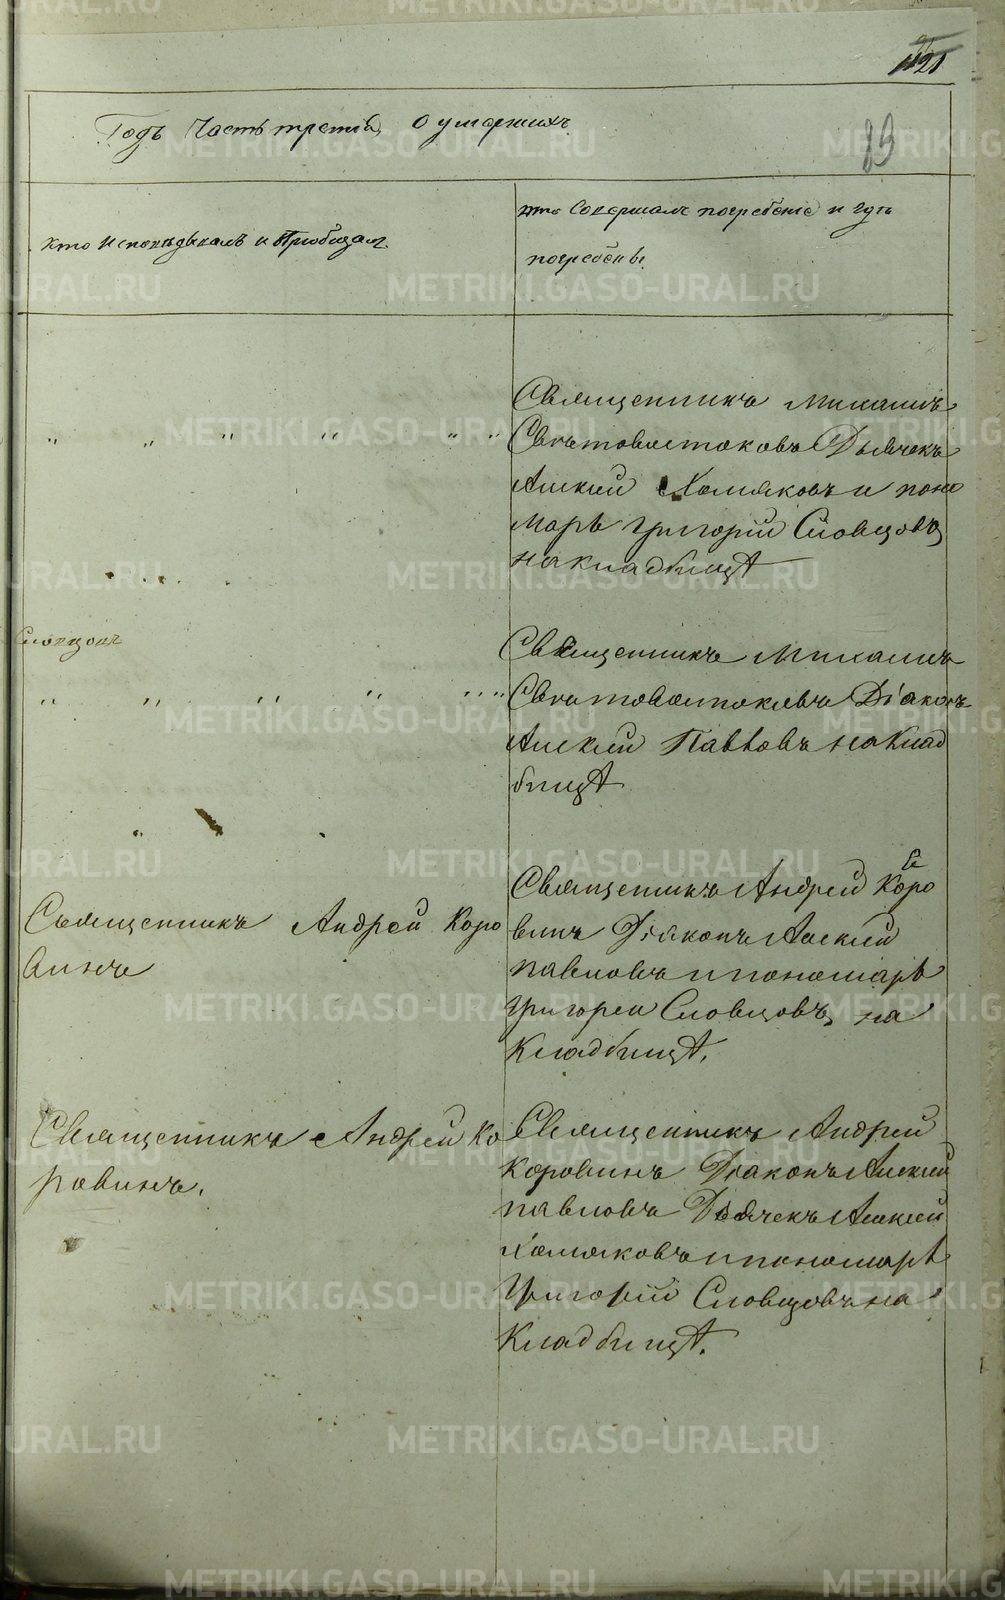 121
Годъ Часть третія О умершихъ
83
кто Исповѣдывалъ и Приобщал.
кто Совершалъ погребеніе и гдѣ
погребены.
Священникъ Михаилъ
" " " " " " Свѣтовостоковъ Дьячекъ
Алекѣй Хомяковъ и поно
марь Григорій Словцовъ
на кладбищѣ
Словцовъ
Священникъ Михаилъ
" " " " " " " Свѣтовостоковъ Діаконъ
Алекѣй Павловъ на Клад
бищѣ
Священникъ Андрей Коро
Священникъ Андрей Коро
винъ
винъ Діаконъ Алекѣй
павловъ и пономарь
Григорей Словцовъ, на
Кладбищѣ.
Священникъ Андрей Ко
ровинъ.
Священникъ Андрей
Коровинъ Діаконъ Алекѣй
павловъ Дьячекъ Алекѣй
Хомяковъ и пономарь
Григорій Словцовъ на
Кладбищѣ.
METRIKI.GASO-URAL.RU